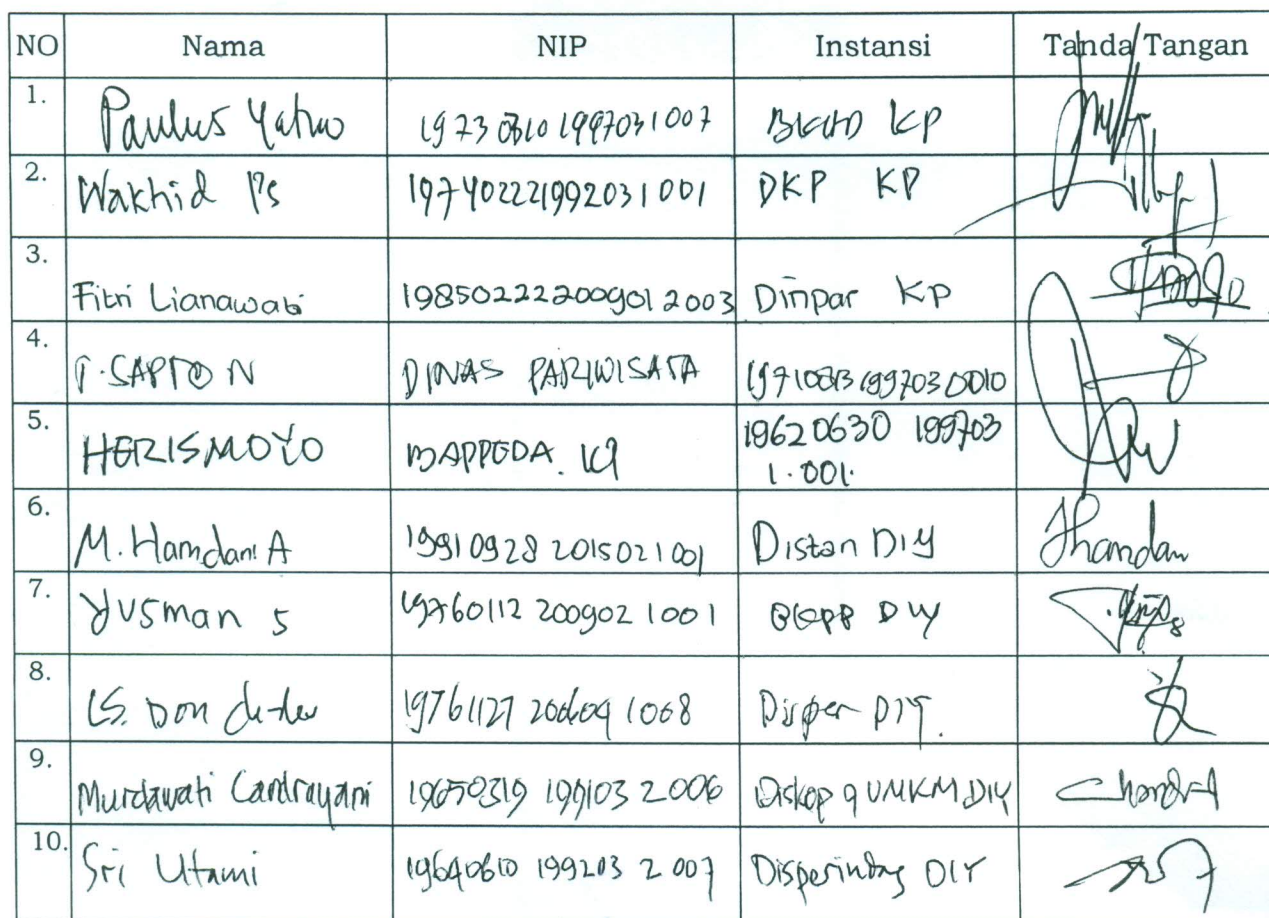 NO Nama NIP Instansi Tanda Tangan
1. Paulus Yatno 19730310 1997031007 KP
2. Wakhid PS 197402221992031001 DKP KP
3. Fitri Lianawati 198502222009012003 Dinpar KP
4. T. SAPTO N DINAS PARIWISATA
5. HERISMOYO BAPPEDA. KP 19620630 199703
1.001.
6. M. Hamdani A 19910928 2015021001 Distan DIY Jhamdan
7. Yusman S 19760112 200902 1001 DIY
8. 19761127 1068 DIY.
9. Murdawati Candrayani 19650319 199103 2006 Diskop UMKM DIY
10. Sri Utami 19640610 199203 2 007 Disperindag DIY